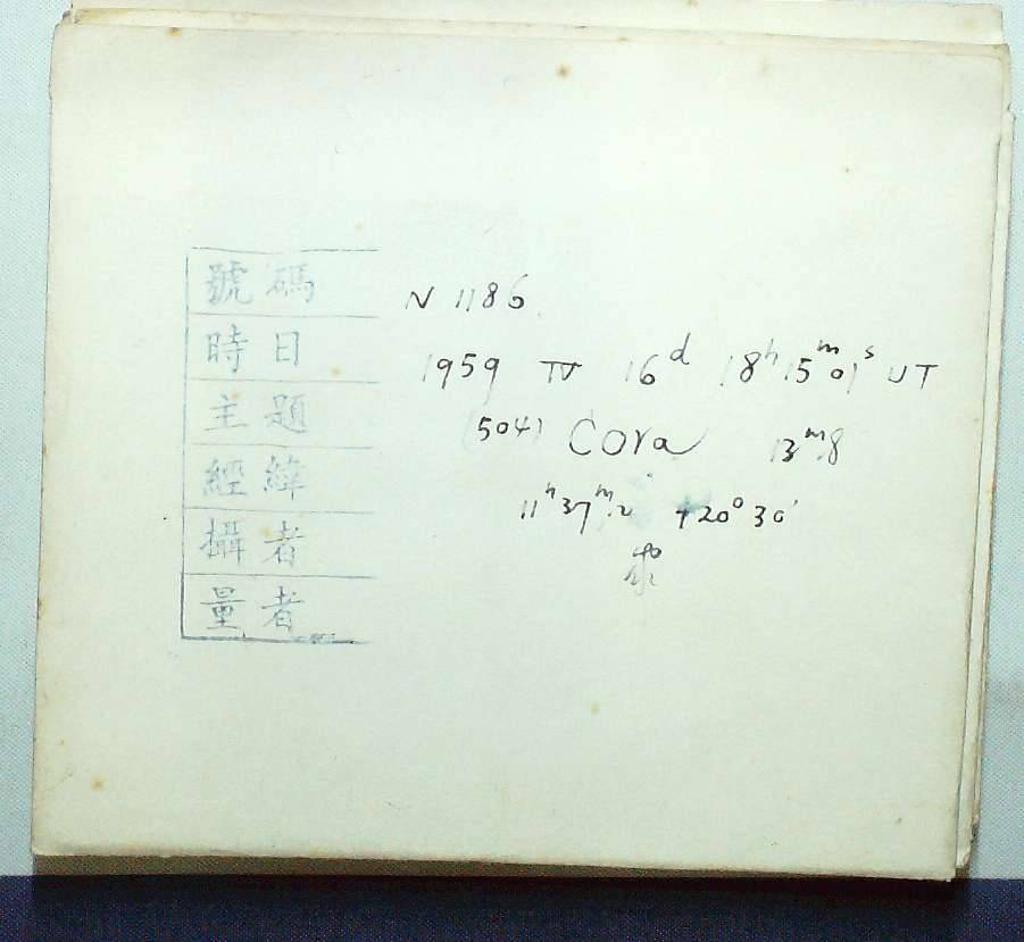 號碼 N 1186
時日 1959 IV 16ᵈ 18ʰ 15ᵐ 01ˢ UT
主題 (504) Cora 13ᵐ.8
經緯 11ʰ 37ᵐ.2 +20° 30'
攝者
量者